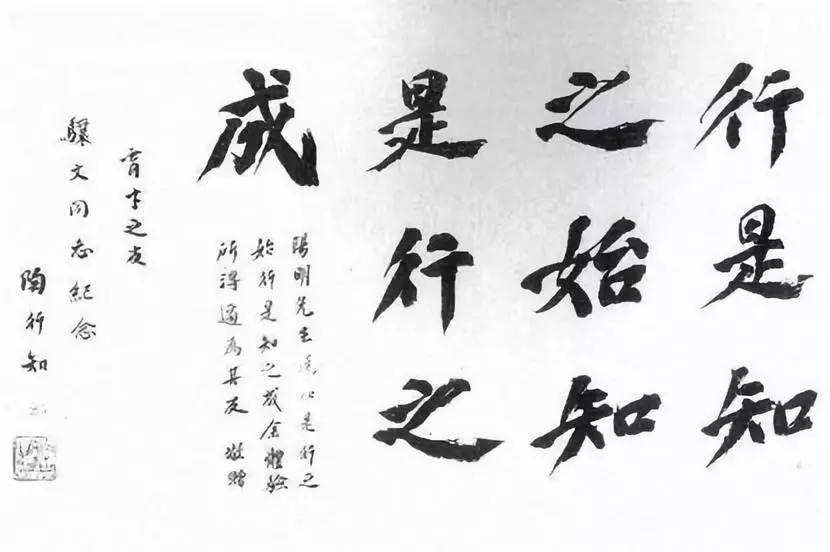 行是知
之始知
是行之
成
陽明先生是行之
始行是知之成余體驗
所得適為其反贈
育才之友
驤文同志紀念
陶行知